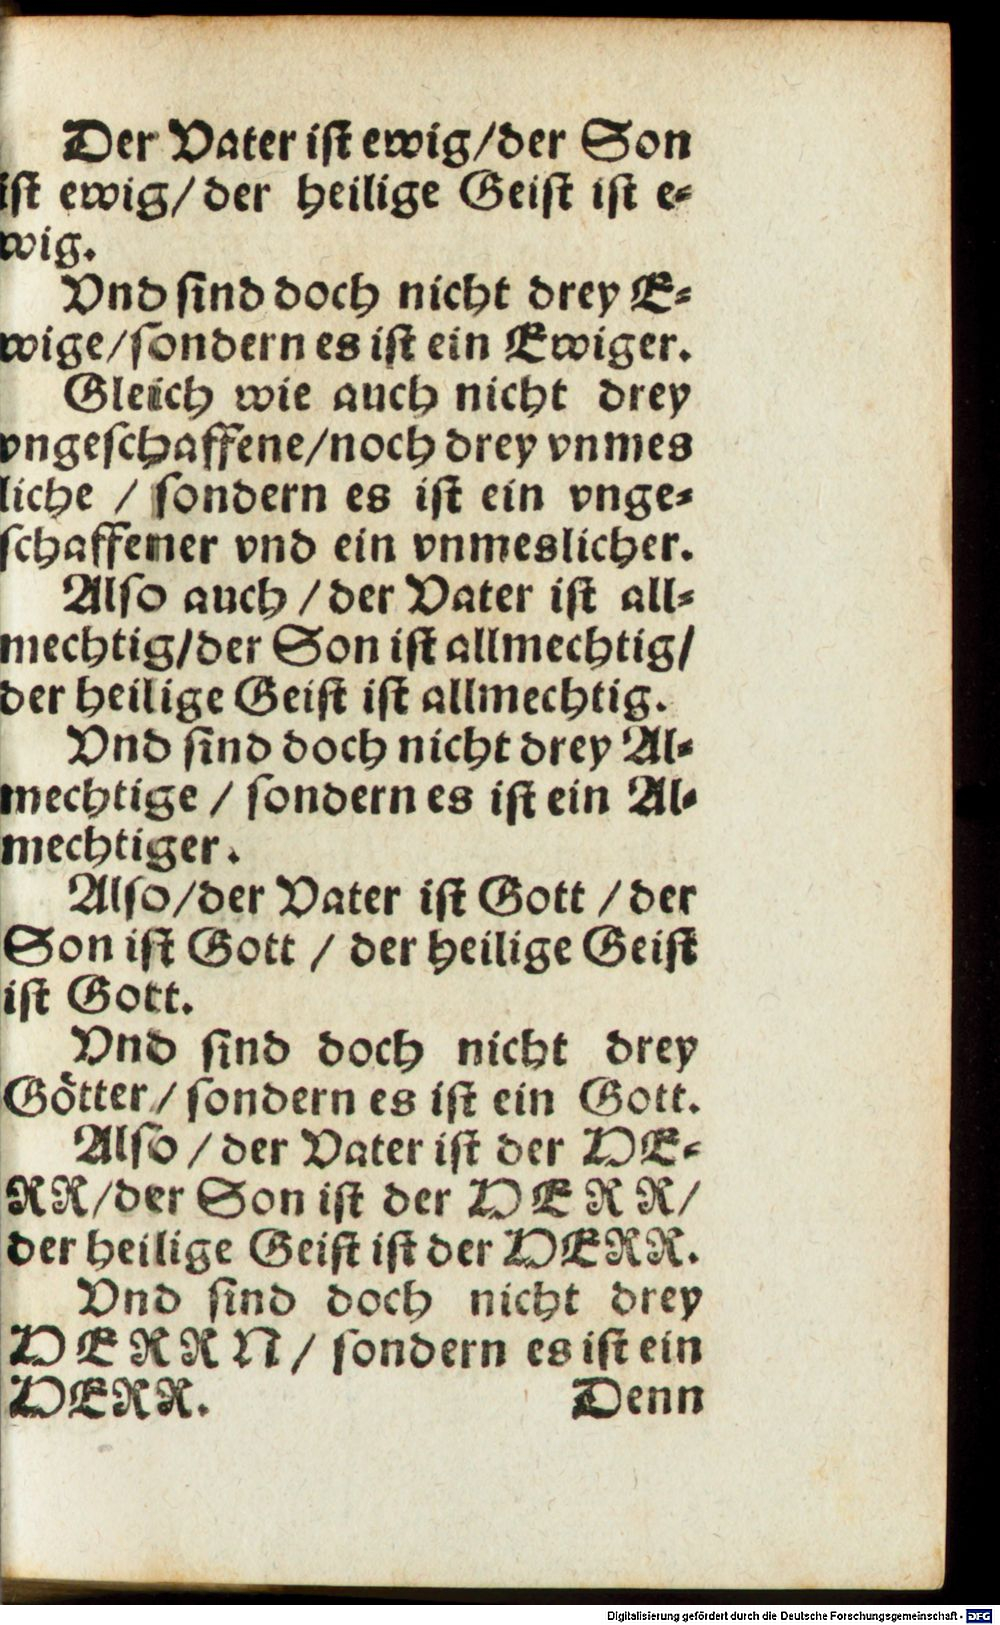 Der Vater iſt ewig/der Son
iſt ewig/ der heilige Geiſt iſt e⸗
wig.
Vnd ſind doch nicht drey E⸗
wige/ſondern es iſt ein Ewiger.
Gleich wie auch nicht drey
vngeſchaffene/noch drey vnmes
liche / ſondern es iſt ein vnge⸗
ſchaffener vnd ein vnmeslicher.
Alſo auch / der Vater iſt all⸗
mechtig/der Son iſt allmechtig/
der heilige Geiſt iſt allmechtig.
Vnd ſind doch nicht drey Al⸗
mechtige / ſondern es iſt ein Al⸗
mechtiger.
Alſo/der Vater iſt Gott / der
Son iſt Gott / der heilige Geiſt
iſt Gott.
Vnd ſind doch nicht drey
Goͤtter/ ſondern es iſt ein Gott.
Alſo / der Vater iſt der HE⸗
RR/der Son iſt der HERR/
der heilige Geiſt iſt der HERR.
Vnd ſind doch nicht drey
HERRN/ ſondern es iſt ein
HERR. Denn
Digitalisierung gefördert durch die Deutsche Forschungsgemeinschaft - DFG